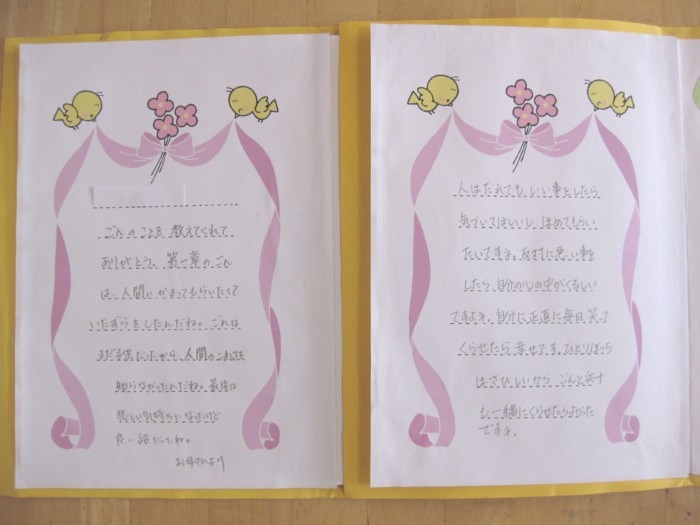 ごんのことを 教えてくれて
ありがとう。第一章のごん
は、人間に かまってもらいたくて
いたずらをしたんだね。ごんは
まだ子供だったから、人間のこわさを
知らなかったんだね。最後は
悲しい気持ちになったけど
良い話だったね。
お母さんより
人はだれでも いい事をしたら
気づいてほしいし ほめてもらい
たいですよね。反対に悪い事を
したら 自分の心の中がくるしい
ですよネ。自分に正直に毎日 笑って
くらせたら 幸せです。ひとりぼっち
はさびしいから ごんと兵十
も一緒にくらせたらよかった
ですネ。